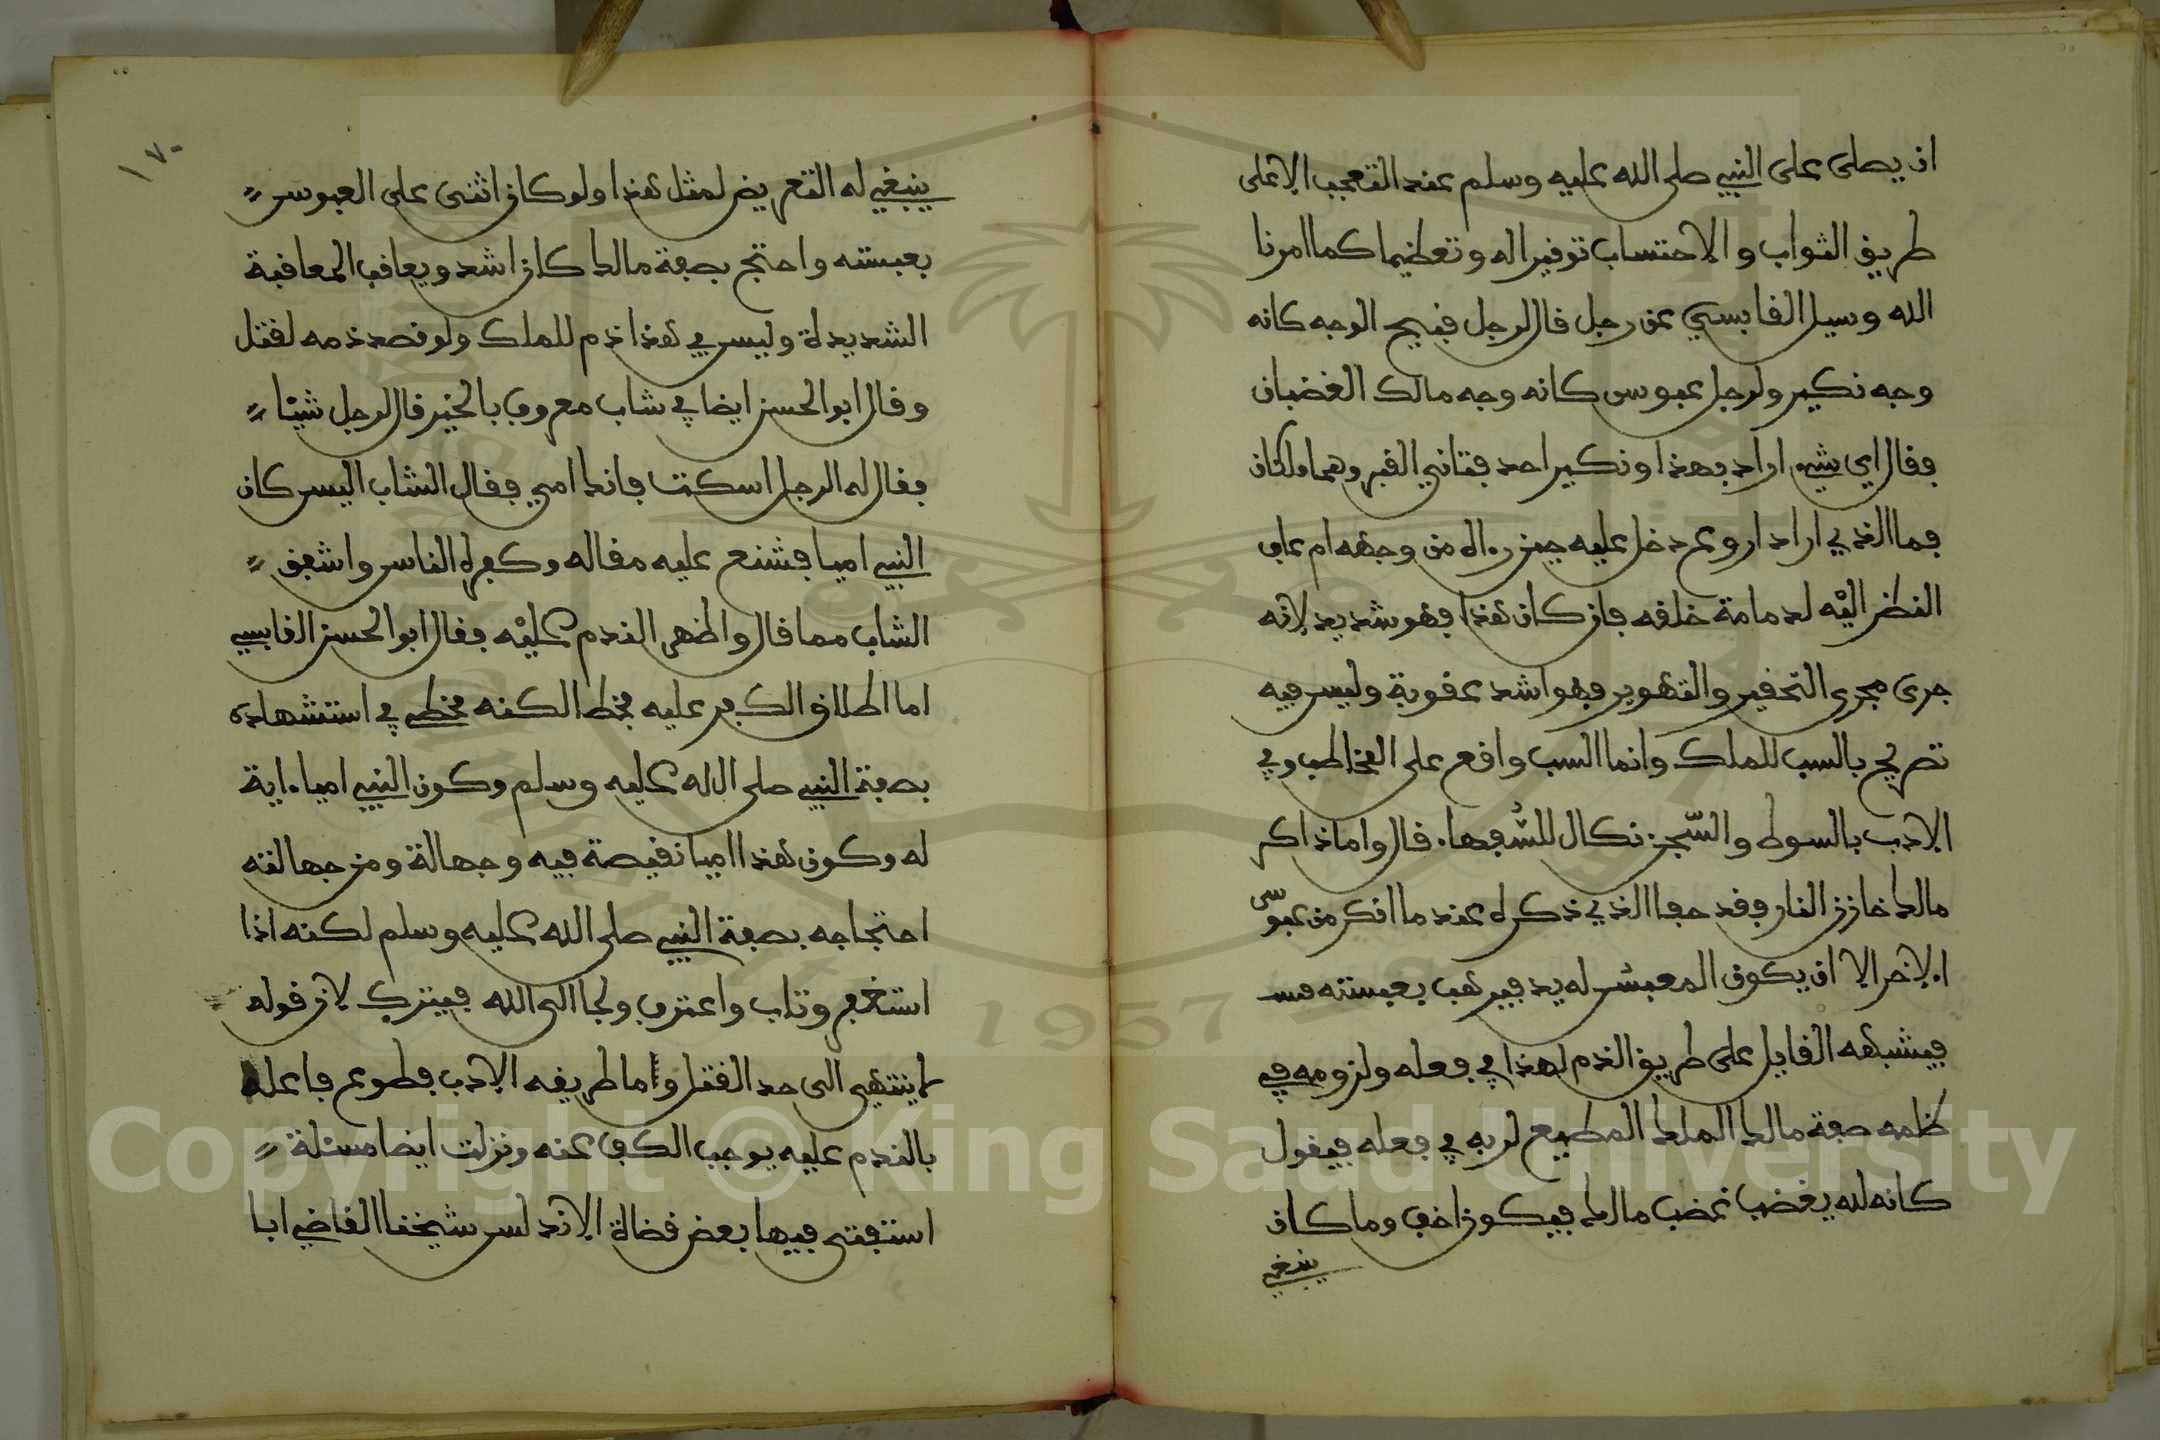 ان يصلى على النبي صلى الله عليه وسلم عند التعجب الا على
طريق الثواب والاحتساب توقيرا له وتعظيما كما امرنا
الله وسيل القابسي عن رجل قال لرجل قبيح الوجه كانه
وجه نكير ولرجل عبوس كانه وجه مالك الغضبان
فقال اي شيء اراد بهذا ونكير احد فتاني القبر وهما ملكان
فما الذي اراد اروع دخل عليه حين رءاه من وجهه ام عاف
النظر اليه لدمامة خلقه فان كان هذا فهو شديد لانه
جرى مجرى التحقير والتهوير فهو اشد عقوبة وليس فيه
تصريح بالسب للملك وانما السب واقع على المخاطب وفي
الادب بالسوط والسّجن نكال للسُّفهاء قال واما ذاكر
مالك خازن النار فقد جفا الذي ذكره عند ما انكر من عبوس
الاخر الا ان يكون المعبس له يد فيرهب بعبسته
فيشبهه القايل على طريق الذم لهذا في فعله ولزومه في
ظلمه صفة مالك الملك المطيع لربه في فعله فيقول
كانه لله يغضب غضب مالك فيكون اخف وما كان
ينبغي
١٧٠
ينبغي له التعريض لمثل هذا ولو كان اثنى على العبوس
بعبسته واحتج بصفة مالك كان اشد ويعاقب المعاقبة
الشديدة وليس في هذا ذم للملك ولو قصد ذمه لقتل
وقال ابو الحسن ايضا في شاب معروف بالخير قال لرجل شيئا
فقال له الرجل اسكت فانك امي فقال الشاب اليس كان
النبي اميا فشنع عليه مقاله وكفره الناس واشفق
الشاب مما قال واظهر الندم عليه فقال ابو الحسن القابسي
اما اطلاق الكفر عليه فخطا لكنه مخطي في استشهاده
بصفة النبي صلى الله عليه وسلم وكون النبي اميا ءاية
له وكون هذا اميا نقيصة فيه وجهالة ومن جهالته
احتجاجه بصفة النبي صلى الله عليه وسلم لكنه اذا
استغفر وتاب واعترف ولجا الى الله فيترك لان قوله
لا ينتهي الى حد القتل وما طريقه الادب فطوع فاعله
بالندم عليه يوجب الكف عنه ونزلت ايضا مسئلة
استفتى فيها بعض قضاة الاندلس شيخنا القاضي ابا
Copyright © King Saud University
1957